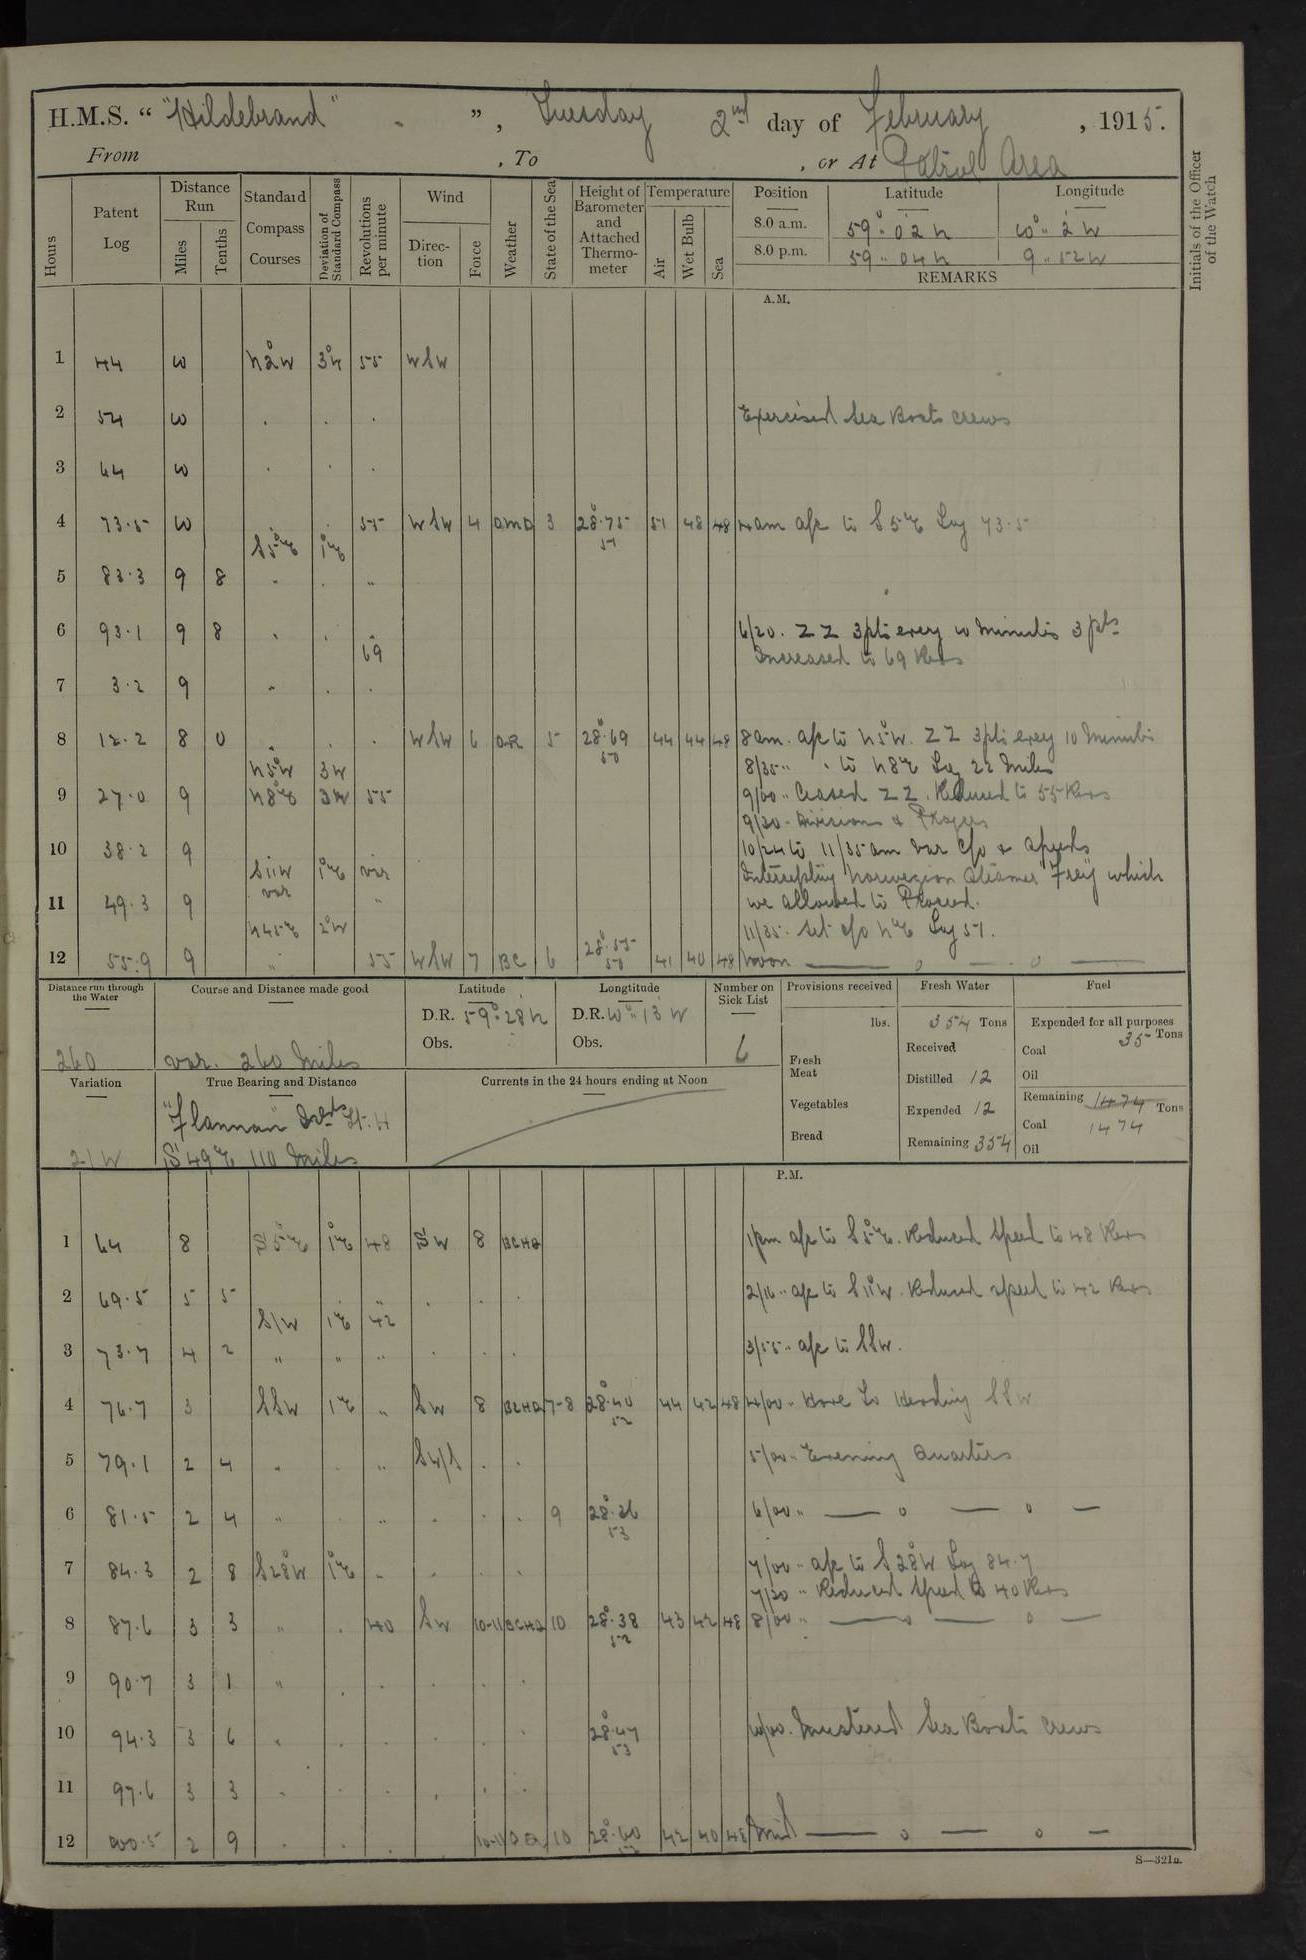 H.M.S. " "Hildebrand" - ", Tuesday 2nd day of February, 1915.
From , To , or At Patrol Area
Hours
Patent Log
Distance Run
Miles
Tenths
Standard Compass Courses
Deviation of Standard Compass
Revolutions per minute
Wind
Direction
Force
Weather
State of the Sea
Height of Barometer and Attached Thermometer
Temperature
Air
Wet Bulb
Sea
Position Latitude Longitude
8.0 a.m. 59° 02 N 10° 2 W
8.0 p.m. 59 04 N 9 52 W
REMARKS
Initials of the Officer of the Watch
A.M.
1 44 10 N2°W 3°W 55 WSW
2 54 10 . . . Exercised Sea Boats crews
3 64 10 . . .
4 73.5 10 . . 55 WSW 4 OMD 3 28.75 51 51 48 48 4am a/c to S5°E Log 73.5
S5°E 1°E
5 83.3 9 8 " . "
6 93.1 9 8 . . " 6/20. ZZ 3pts every 10 Minutes 3 pts
69 Increased to 69 Revs
7 3.2 9 " . .
8 12.2 8 0 . . . WSW 6 OR 5 28.69 50 44 44 48 8am. a/c to N5°W. ZZ 3pts every 10 Minutes
N5°W 3W 8/35 " . to N8°E Log 22 Miles
9 27.0 9 N8°E 3W 55 9/00 " Ceased ZZ. Reduced to 55 Revs
9/30 - Divisions & Prayers
10 38.2 9 10/24 to 11/35am Var C/o & Speeds
S11W 1°E var Intercepting Norwegian Steamer "Frey" which
var
11 49.3 9 " we allowed to Proceed.
N45°E 2°W 11/35. Set C/o N°E Log 51.
12 55.9 9 " 55 WSW 7 BC 6 28.55 50 41 40 48 Noon
Distance run through the Water
260
Course and Distance made good
var. 260 Miles
Latitude
D.R. 59° 28 N
Obs.
Longtitude
D.R. 10° 13 W
Obs.
Number on Sick List
6
Provisions received
lbs.
Fresh Meat
Vegetables
Bread
Fresh Water
354 Tons
Received
Distilled 12
Expended 12
Remaining 354
Fuel
Expended for all purposes
Coal 35 Tons
Oil
Remaining 1474 Tons
Coal 1474
Oil
Variation
21W
True Bearing and Distance
"Flannan" Isds Lt. H
S49°E 110 Miles
Currents in the 24 hours ending at Noon
P.M.
1 64 8 S5°E 1°E 48 SW 8 BCHQ 1pm a/c to S5°E. Reduced Speed to 48 Revs
2 69.5 5 5 . " . . . 2/16 " a/c to S11°W. Reduced speed to 42 Revs
S11W 1°E 42
3 73.7 4 2 " " " . . . 3/55 " a/c to SSW.
4 76.7 3 SSW 1°E " SW 8 BCHQ 7-8 28.40 52 44 42 48 4/00 " Hove To Heading SSW
5 79.1 2 4 . . " SW/S . . 5/00 " Evening Quarters
6 81.5 2 4 " . " . . . 9 28.36 53 6/00 "
7 84.3 2 8 S28°W 1°E " . . . 7/00 " a/c to S28°W Log 84.7
7/30 " Reduced Speed to 40 Revs
8 87.6 3 3 " . 40 SW 10-11 BCHQ 10 28.38 52 43 42 48 8/00 "
9 90.7 3 1 " . . . . .
10 94.3 3 6 . . . . . . 28.47 53 10/00. Mustered Sea Boats Crews
11 97.6 3 3 . . . . . .
12 00.5 2 9 . . . 10-11 10 28.60 42 40 48 Mid
S—321a.